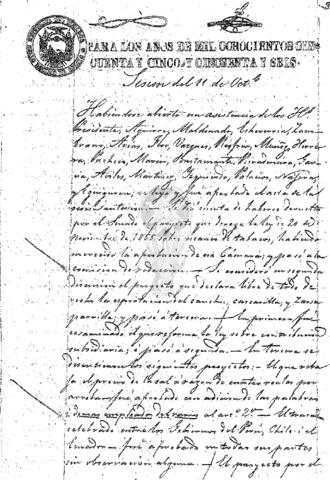 PARA LOS AÑOS DE MIL OCHOCIENTOS CIN
CUENTA Y CINCO, Y CINCUENTA Y SEIS.
Sesion del 11 de Oct.e
Habiendose abierto con asistencia de los HH.
Presidente, Aguirre, Maldonado, Echeverria, Zam
brano, Arias, Flor, Vasquez, Riofrio, Muñoz, Herre
ra, Pacheco, Marin, Bustamante, Rivadeneira, Gar
cia, Aviles, Martinez, Izquierdo, Palacios,
y leyó i fué aprobada el acta de la
sesion anterior. Se dió cuenta de haberse devuelto
por el Senado el proyecto que deroga la ley de 20 de
de 1855 sobre de tabacos, habiendo
merecido la aprobacion de esa Cámara; y pasó a la
comision de redaccion. Se consideró en segunda
discusion el proyecto que declara libre de todo de
recho la esportacion del cauchu, cascarilla, y Zarza
parrilla; y pasó a tercera. En primera fué
examinado el que reforma la ley sobre contribucion
subsidiaria; i pasó a segunda. En tercera se
discutieron los siguientes proyectos: El que reba
ja el precio de la sal a razon de cuatro reales por
arroba; fué aprobado con adicion de las palabras
al art.o 2.o El tratado
celebrado entre los Gobiernos del Perú, Chile i el
Ecuador fué aprobado en todas sus partes
sin observacion alguna. El proyecto por el